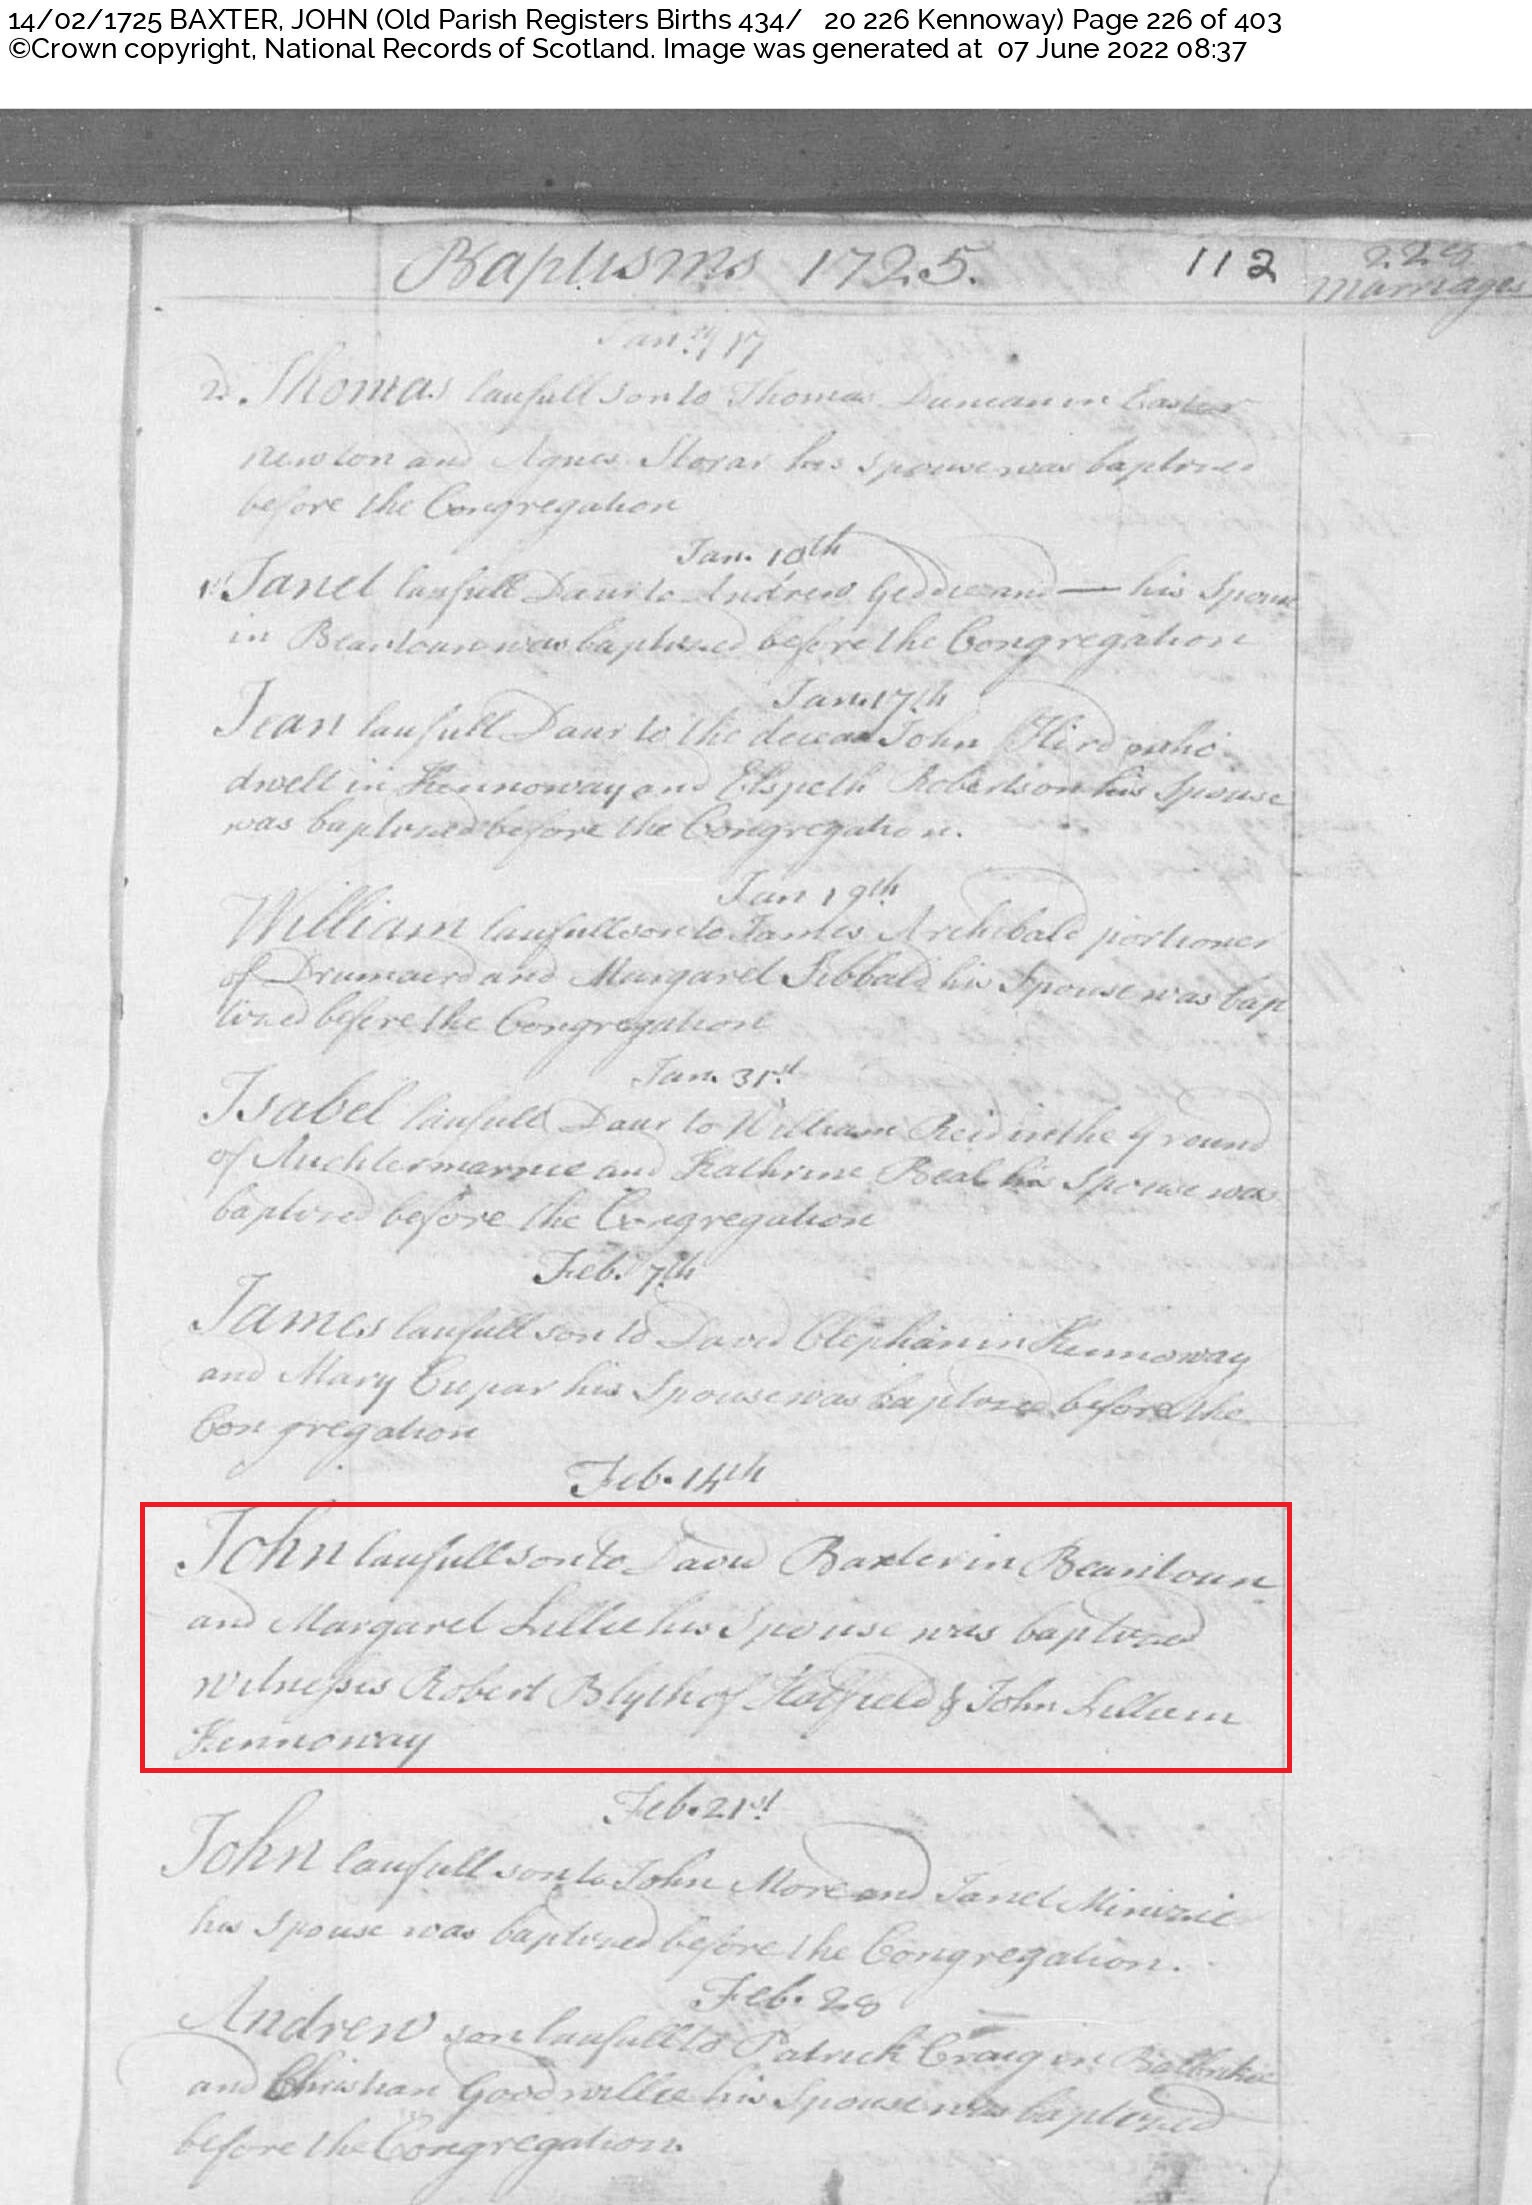 14/02/1725 BAXTER, JOHN (Old Parish Registers Births 434/ 20 226 Kennoway) Page 226 of 403
©Crown copyright, National Records of Scotland. Image was generated at 07 June 2022 08:37
Baptisms 1725. 112
Marriages
2d. Thomas laufull son to Thomas Duncan in Easter
Newton and Agnes Storar his Spouse was baptized
before the Congregation
Jan. 10th
Janet laufull Daur to Andrew Geddie and — his Spouse
in Beantoun was baptized before the Congregation
Jan. 17th
Jean laufull Daur to the deceas John Hird who
dwelt in Kennoway and Elspeth Robertson his Spouse
was baptized before the Congregation.
Jan 19th
William laufull son to James Archibald portioner
of Drumaird and Margaret Sibbald his Spouse was bap
tized before the Congregation
Jan. 31st
Isabel laufull Daur to William Reid in the Ground
of Auchtermarnie and Kathrine Beal his Spouse was
baptized before the Congregation
Feb. 7th
James laufull son to David Clephan in Kennoway
and Mary Cupar his Spouse was baptized before the
Congregation
Feb. 14th
John laufull son to David Baxter in Beantoun
and Margaret Lillie his Spouse was baptized
witnesses Robert Blyth of Hatfield & John Lillie in
Kennoway
Feb. 21st
John laufull son to John More and Janet Minizie
his Spouse was baptized before the Congregation.
Feb. 28
Andrew son laufull to Patrick Craig in
and Christian Goodwillie his Spouse was baptized
before the Congregation.